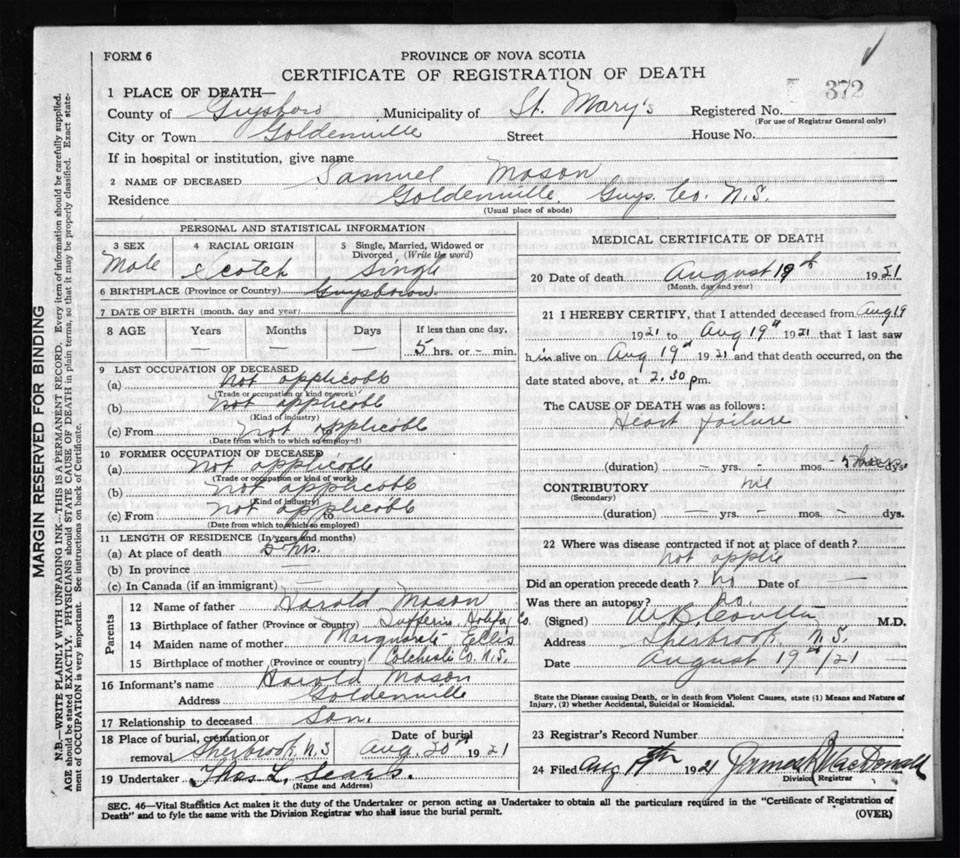 FORM 6
PROVINCE OF NOVA SCOTIA
CERTIFICATE OF REGISTRATION OF DEATH
372
1 PLACE OF DEATH—
County of Guysboro Municipality of St. Mary's Registered No.
(For use of Registrar General only)
City or Town Goldenville Street House No.
If in hospital or institution, give name
2 NAME OF DECEASED Samuel Mason
Residence Goldenville, Guys. Co. N.S.
(Usual place of abode)
PERSONAL AND STATISTICAL INFORMATION
3 SEX 4 RACIAL ORIGIN 5 Single, Married, Widowed or Divorced (Write the word)
Male Scotch Single
6 BIRTHPLACE (Province or Country) Guysboro
7 DATE OF BIRTH (month, day and year)
8 AGE Years Months Days If less than one day,
— — — 5 hrs. or – min.
9 LAST OCCUPATION OF DECEASED
(a) Not applicable
(Trade or occupation or kind of work)
(b) Not applicable
(Kind of industry)
(c) From not applicable
(Date from which to which so employed)
10 FORMER OCCUPATION OF DECEASED
(a) Not applicable
(Trade or occupation or kind of work)
(b) Not applicable
(Kind of industry)
(c) From Not applicable to
(Date from which to which so employed)
11 LENGTH OF RESIDENCE (In years and months)
(a) At place of death 5 hrs.
(b) In province —
(c) In Canada (if an immigrant) —
Parents
12 Name of father Harold Mason
13 Birthplace of father (Province or country) Dufferin, Halifax Co.
14 Maiden name of mother Ellis
15 Birthplace of mother (Province or country) Colchester Co. N.S.
16 Informant's name Harold Mason
Address Goldenville
17 Relationship to deceased Son.
18 Place of burial, cremation or removal Sherbrook, N.S Date of burial Aug 20th 1921
19 Undertaker Thos L. Sears.
(Name and Address)
MEDICAL CERTIFICATE OF DEATH
20 Date of death August 19th 1921
(Month, day and year)
21 I HEREBY CERTIFY, that I attended deceased from Aug 19
1921 to Aug 19th 1921 that I last saw
him alive on Aug 19th 1921 and that death occurred, on the
date stated above, at 2.30 pm.
The CAUSE OF DEATH was as follows:
Heart failure
(duration) – yrs. – mos. 5 dys.
CONTRIBUTORY nil
(Secondary)
(duration) – yrs. – mos. – dys.
22 Where was disease contracted if not at place of death?
not applic
Did an operation precede death? no Date of —
Was there an autopsy? no.
(Signed) M.D.
Address Sherbrook, N.S.
Date August 19th/21
State the Disease causing Death, or in death from Violent Causes, state (1) Means and Nature of
Injury, (2) whether Accidental, Suicidal or Homicidal.
23 Registrar's Record Number
24 Filed Aug 19th 1921 MacDonald
Division Registrar
SEC. 46—Vital Statistics Act makes it the duty of the Undertaker or person acting as Undertaker to obtain all the particulars required in the "Certificate of Registration of
Death" and to fyle the same with the Division Registrar who shall issue the burial permit.
(OVER)
MARGIN RESERVED FOR BINDING
N.B.—WRITE PLAINLY WITH UNFADING INK—THIS IS A PERMANENT RECORD. Every item of information should be carefully supplied.
AGE should be stated EXACTLY. PHYSICIANS should STATE CAUSE OF DEATH in plain terms, so that it may be properly classified. Exact state-
ment of OCCUPATION is very important. See instructions on back of Certificate.